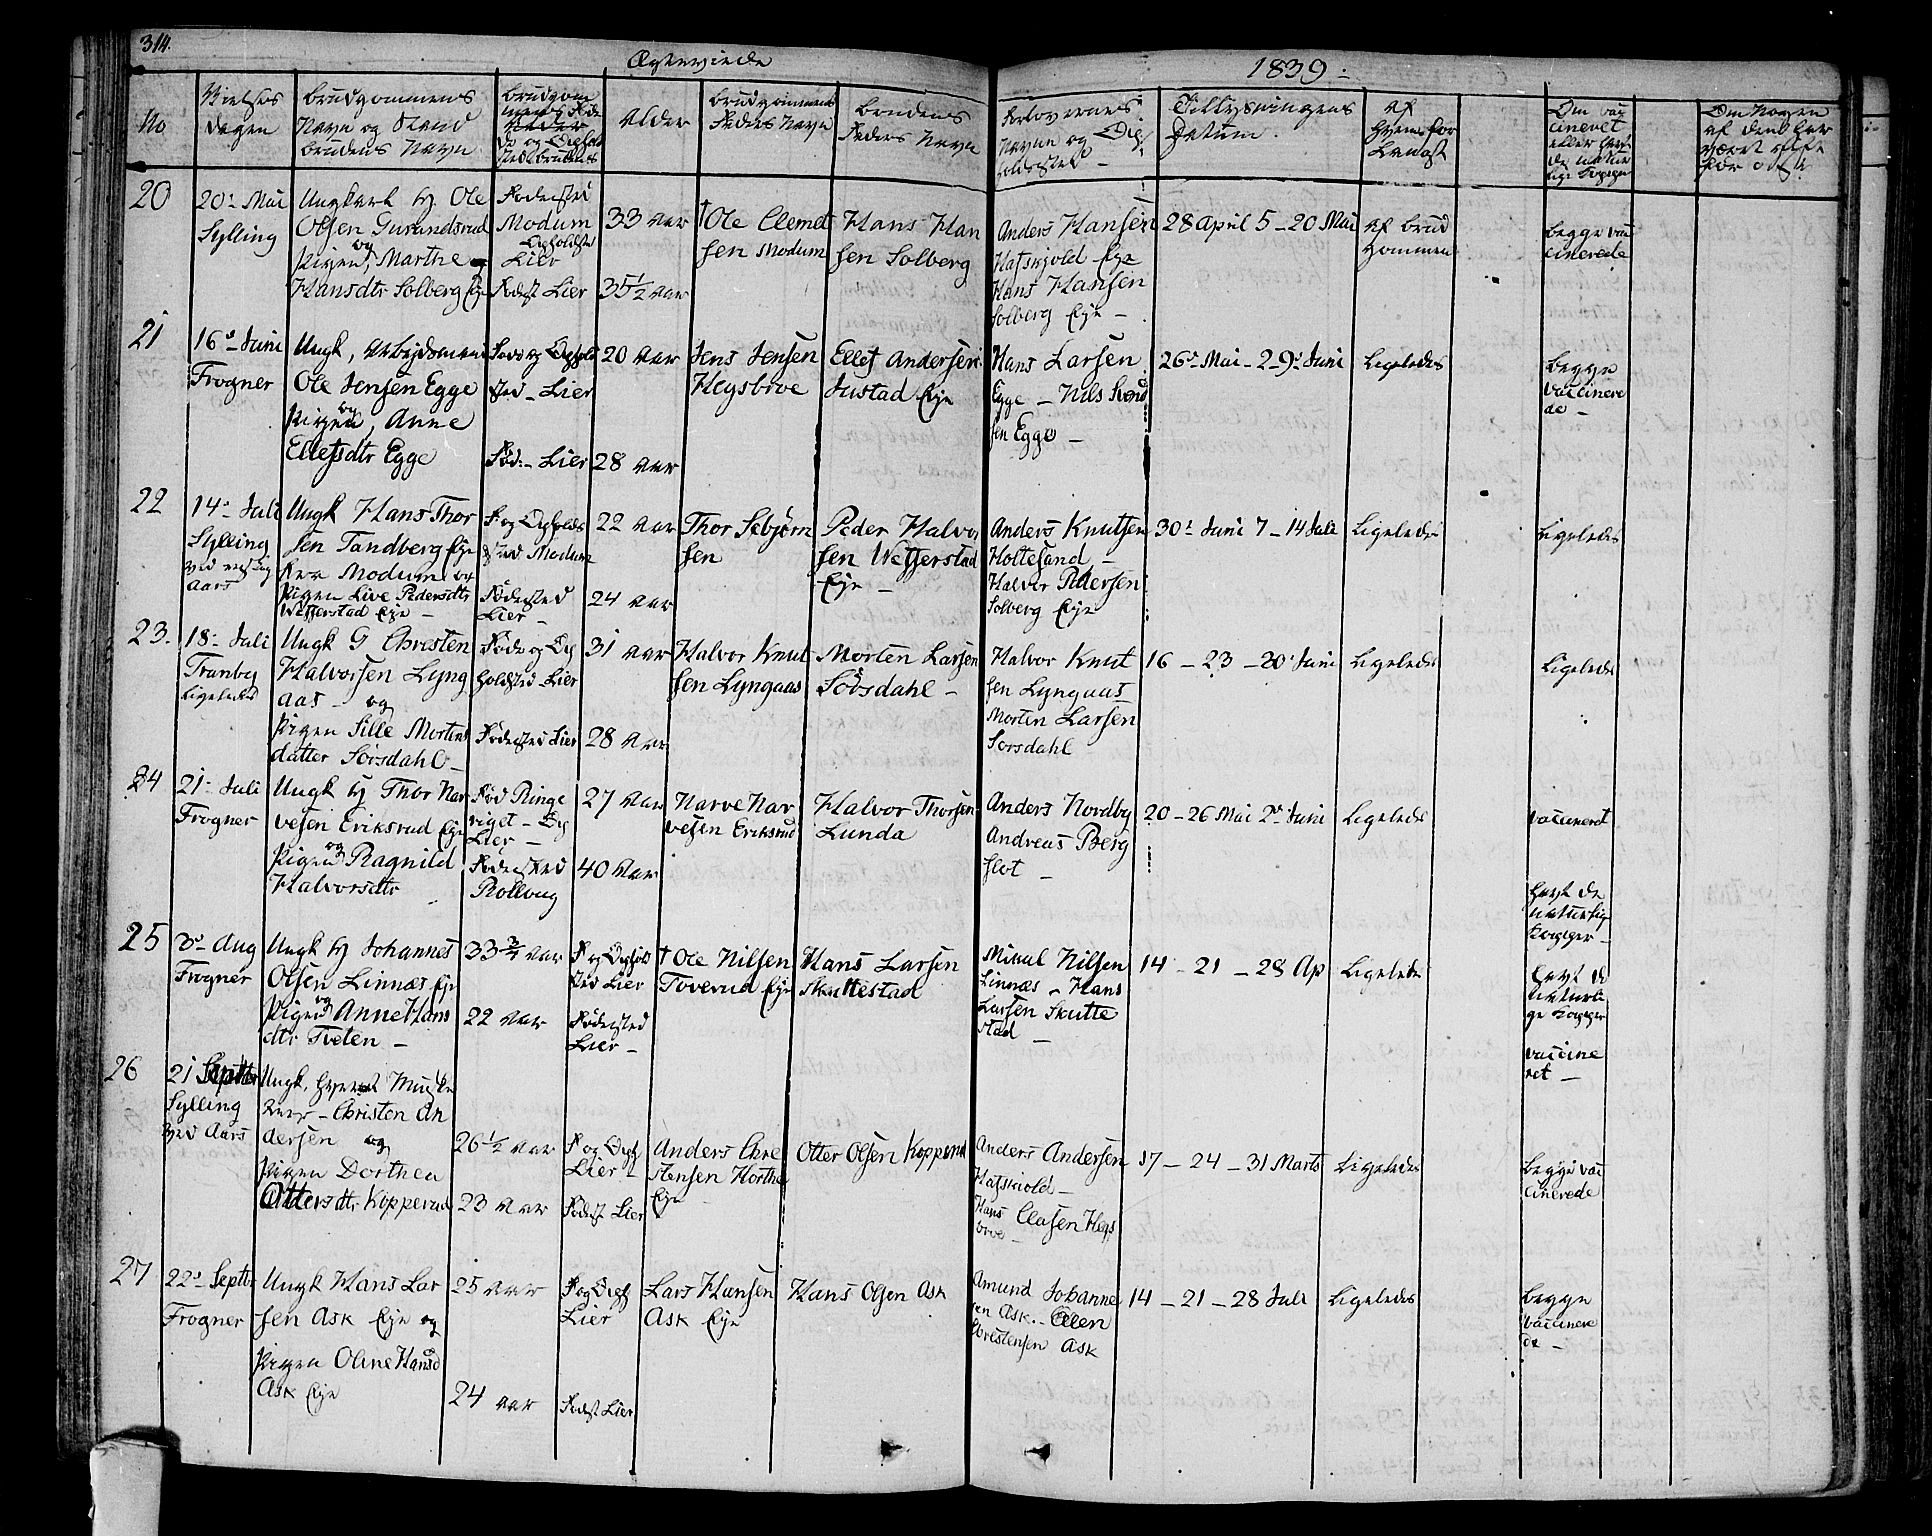 314.
Ægteviede
1839.
No
Vielses
dagen
Brudgommens
Navn og Stand
Brudens Navn
Alder
Brudgommens
Faders Navn
Brudens
Faders Navn
Forlovernes
Navne og Op
holdssted
Tillysningens
Datum.
af
hvem for
langt
Om vac
cineret
eller havt
de natur
lige Kopper
20
20de Mai
Sylling
Ungkarl Hj Ole
Olsen Gurandsrud
og
Pigen, Marthe
Hansdtr Solberg Eje
Fødested
Modum
Opholdsted
Lier
Fødest Lier
33 Aar
35 1/2 Aar
† Ole Clemet
sen Modum
Hans Han
sen Solberg
Anders Hansen
Hafskjold Eje
Hans Hansen
Solberg Eje -
28 April 5 - 20 Mai
Af Brud
gommen
Begge vac
cinerede
21
16de Juni
Frogner
Ungk, Arbejdsmand
Ole Jensen Egge
og
Pigen, Anne
Ellefsdtr Egge
Føde og Ophold
sted - Lier
Fød: - Lier
20 Aar
28 Aar
Jens Jensen
Hegsbroe
Ellef Andersen
Justad Eje
Hans Larsen
Egge - Nils Knud
sen Egge -
26de Mai - 2 - 9de Juni
Ligeledes
Begge
vaccinere
de -
22
14de Juli
Sylling
Aars
Ungk Hans Thor
sen Tandberg Eje
Modum og
Pigen Live Pedersdtr
Wefferstad Eje -
F og Opholds
sted Modum
Fødested
Lier -
22 Aar
24 Aar
Thor Sebjørn
sen
Peder Halvor
sen Wefferstad
Eje -
Anders Knutsen
Holtesand -
Halvor Pedersen
Solberg Eje
30de Juni 7 - 14 Juli
Ligeledes
Ligeledes
23.
18de Juli
Tranby
Ligeledes
Ungk G Christen
Halvorsen Lyng
aas - og
Pigen Sille Mortens
datter Sørsdahl -
Føde og Op
holdsted Lier
Fødested Lier
31 Aar
28 Aar
Halvor Knut
sen Lyngaas
Morten Larsen
Sørsdahl -
Halvor Knut
sen Lyngaas
Morten Larsen
Sørsdahl
16 - 23 - 30de Juni
Ligeledes
Ligeledes
24
21de Juli
Frogner
Ungk Hj Thor Nar
vesen Eriksrud Eje
og
Pigen Ragnild
Halvorsdtr
Fød Ringe
riget - Op
Lier -
Fødested
Rollaug
27 Aar
40 Aar
Narve Nar
vesen Eriksrud
Halvor Thorsen
Lunda
Anders Nordby
Andreas Berg
flot -
20 - 26 Mai 2de Juni
Ligeledes
vaccineret
havt de
naturlige
Kopper -
25
3de Aug
Frogner
Ungk Hj Johannes
Olsen Linnæs Eje
og
Pigen Anne Hans
dtr Tveten -
33 3/4 Aar
22 Aar
F og Ophold
sted Lier
Fødested
Lier -
† Ole Nilsen
Toverud Eje
Hans Larsen
Skuttestad
Mikal Nilsen
Linnæs - Hans
Larsen Skutte
stad
14 - 21 - 28 Ap
Ligeledes
havt de
naturli
ge Kopper
vaccine
ret -
26
21 Septbr
Sylling
ved Aars
Ungk, hvervet Muske
teer - Christen An
dersen og
Pigen Dorthea
Ottersdtr Kopperud
26 1/2 Aar
23 Aar
F og Oph
Lier -
Fødest Lier
Anders Chri
stensen Horthe
Eje
Otter Olsen Kopperud
Anders Andersen
Hafskiold -
Hans Olafsen Hegs
broe -
17 - 24 - 31 Marts
Ligeledes
Begge vac
cinerede
27
22de Septbr
Frogner
Ungk Hans Lar
sen Ask Eje og
Pigen Oline Hansd
Ask Eje
25 Aar
24 Aar
F og Oph
Lier
Fødest Lier
Lars Hansen
Ask Eje
Hans Olsen Ask
Amund Johanne
sen Ask. - Olen
Christensen Ask
14 - 21 - 28 Juli
Ligeledes
Begge
vaccinere
de -